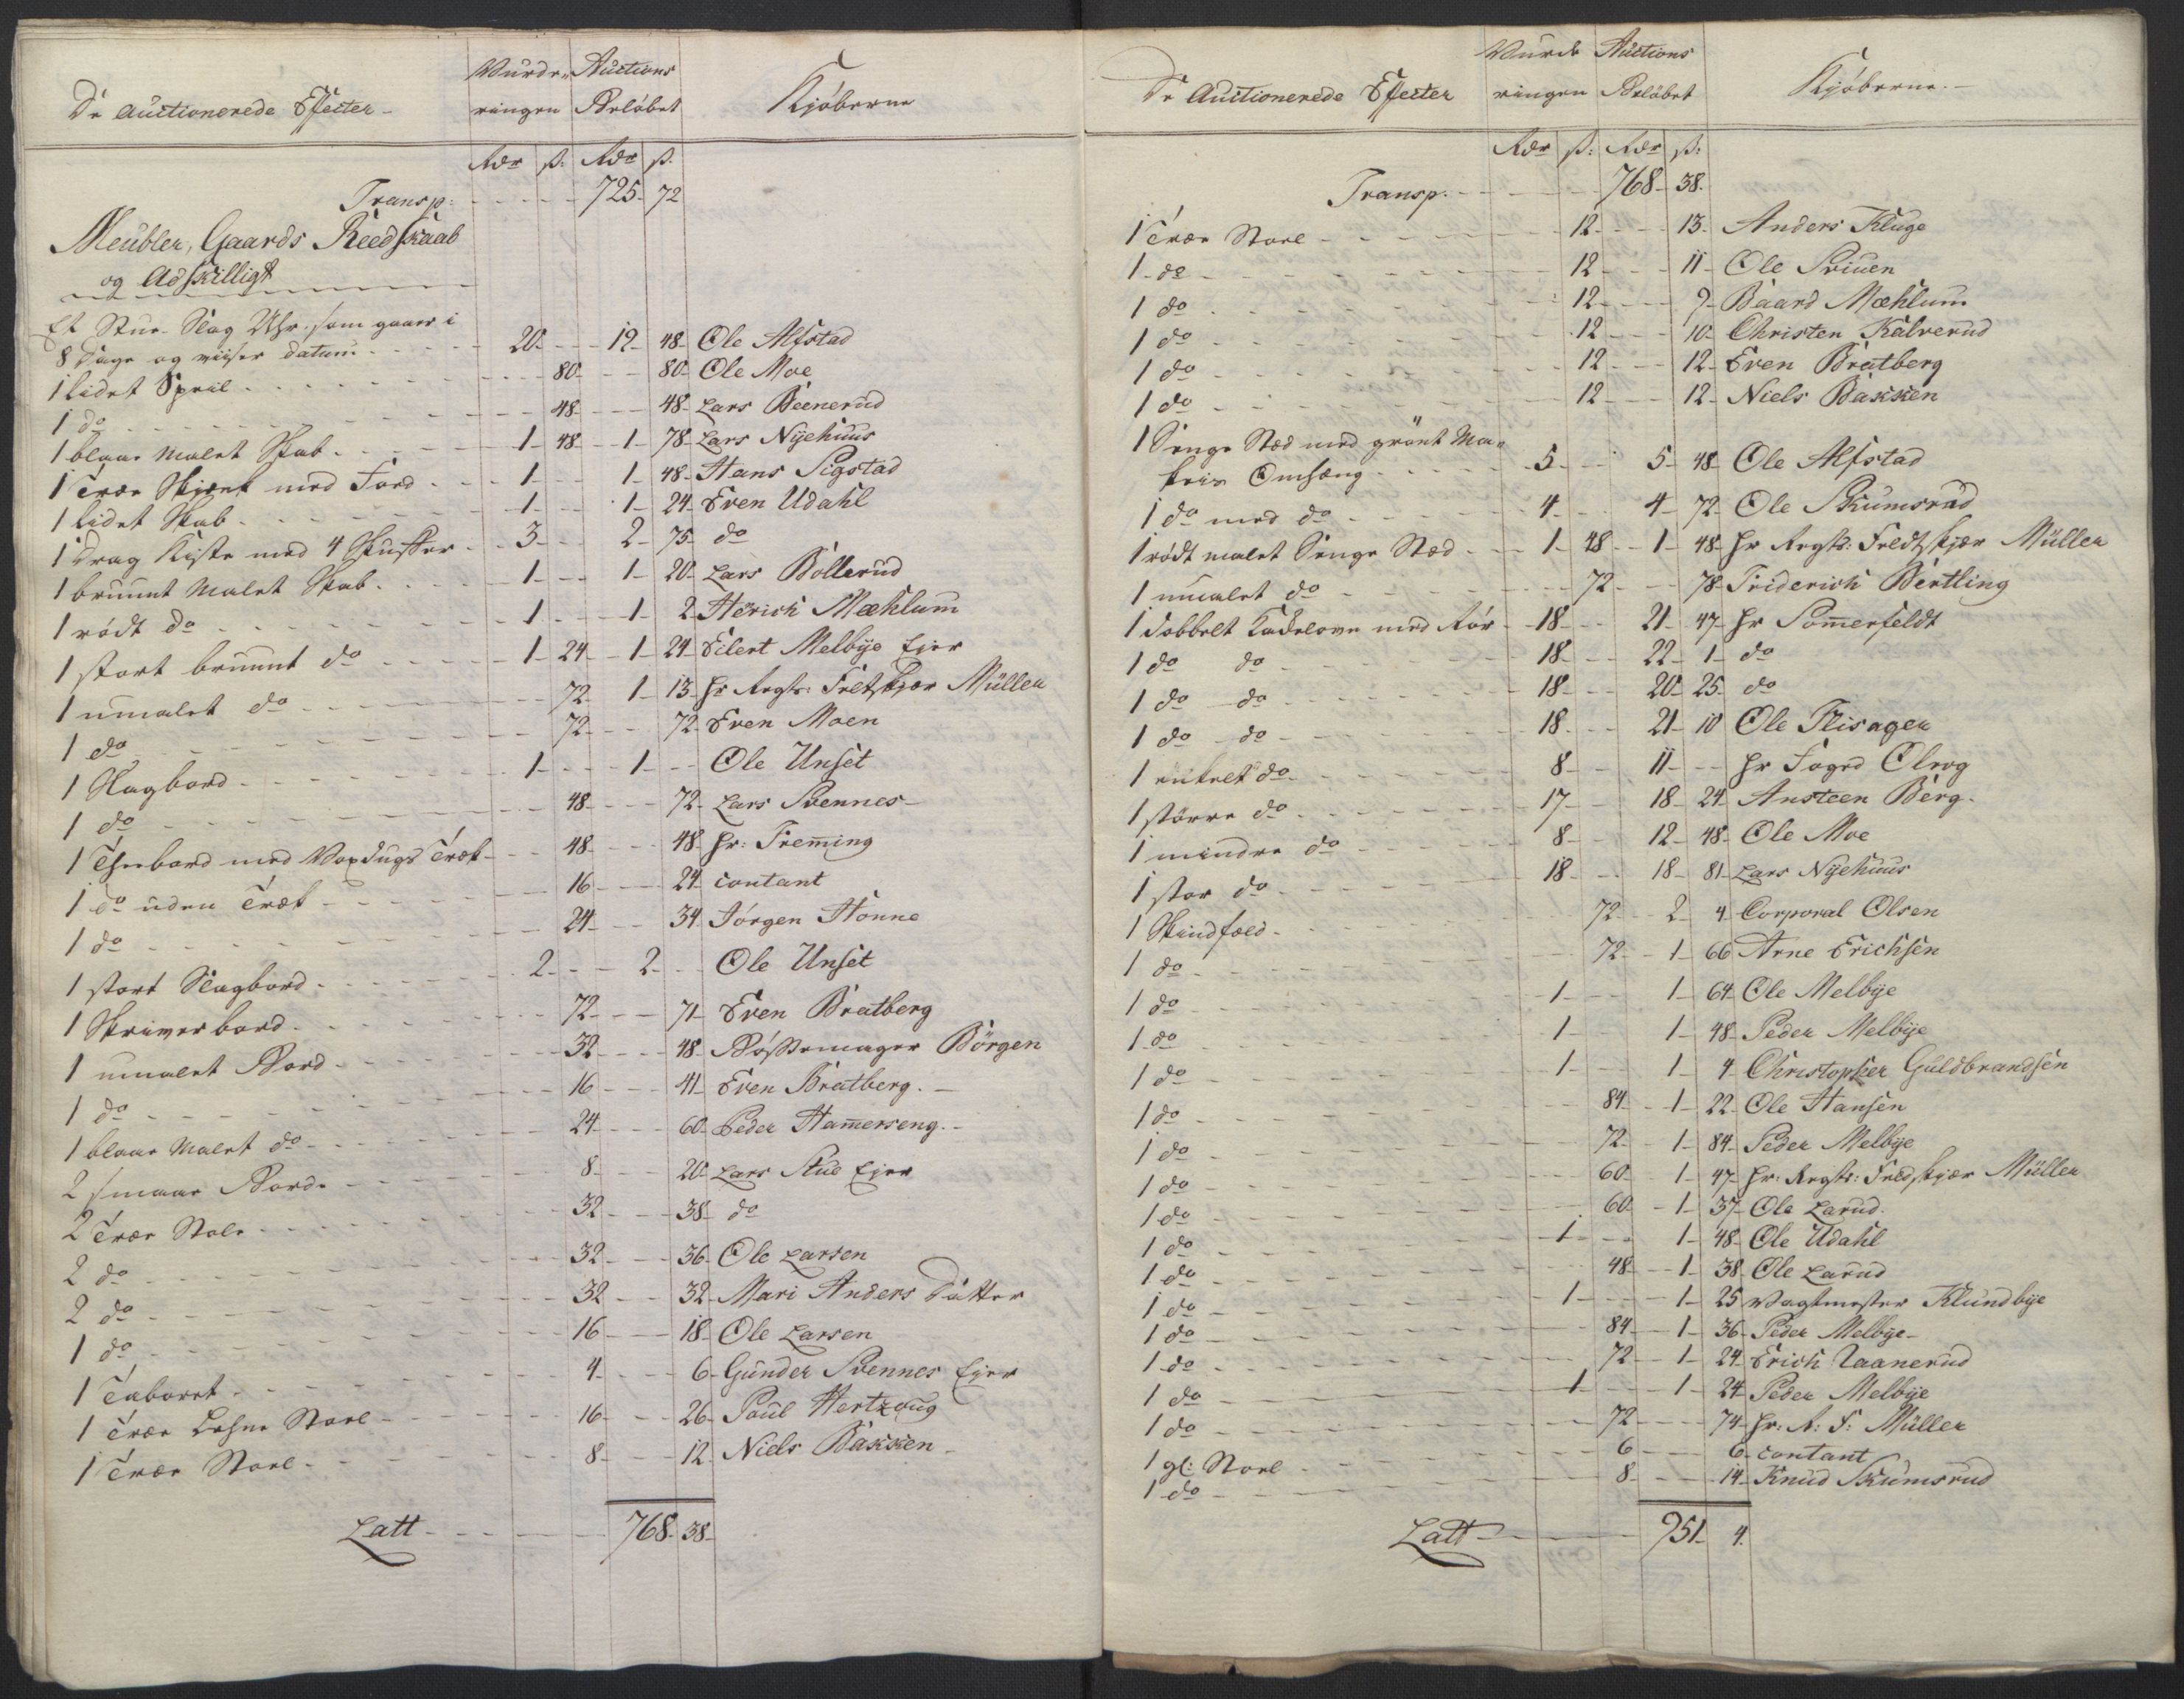 De Auctionerede Effecter Vurde- Auctions Kjøberne
ringen Beløbet
Rdr ß: Rdr ß.
Transp: 725 72
Meubler, Gaards Reedskaab
og Adskilligt
Et Stue-Slag Uhr. som gaaer i
8 Dage og viiser datum 20 12 48 Ole Alfstad
1 lidet Speil 80 80 Ole Moe
1 do 48 48 Lars Beenerud
1 blaae malet Skab 1 48 1 78 Lars Nÿehuus
1 Træe Skjenk med Foed 1 1 48 Hans Sigstad
1 lidet Skab 1 1 24 Even Udahl
1 Drag Kiste med 4 Skuffer 3 2 75 do
1 bruunt malet Skab 1 1 20 Lars Bollerud
1 rødt do 1 1 2 Herich Mæhlum
1 stort bruunt do 1 24 1 24 Eilert Melbÿe Eier
1 umalet do 72 1 13 Hr Regts: Feltskjær Müller
1 do 72 72 Even Moen
1 Slagbord 1 1 Ole Unset
1 do 48 72 Lars Svennes
1 Theebord med Voxdugs Træk 48 48 Hr: Freming
1 do uden Træk 16 24 contant
1 do 24 34 Jørgen Honne
1 stort Slagbord 2 2 Ole Unset
1 Skriverbord 72 71 Even Bratberg
1 umalet Bord 32 48 Bøssemager Börgen
1 do 16 41 Even Bratberg
1 blaae malet do 24 60 Peder Hamerseng
2 smaae Borde 8 20 Lars Stue Eier
2 Træe Stole 32 38 do
2 do 32 36 Ole Larsen
2 do 32 32 Mari Anders Datter
1 do 16 18 Ole Larsen
1 Taboret 4 6 Gunder Svennes Eier
1 Træe Lehne Stoel 16 26 Poul Hertzoug
1 Træe Stoel 8 12 Niels Bakken
Latt 768 38
De Auctionerede Effecter Vurde Auctions Kjøberne
ringen Beløbet
Rdr ß: Rdr ß:
Transp. 768 38
1 Træe Stoel 12 13 Anders Kluge
1 do 12 11 Ole Sriuen
1 do 12 9 Baard Mæhlum
1 do 12 10 Christen Kalverud
1 do 12 12 Even Bratberg
1 do 12 12 Niels Bakken
1 Senge Sted med grönt Ma-
keis Omhæng 5 5 48 Ole Alfstad
1 do med do 4 4 72 Ole Skumsrud
1 rødt malet Senge Sted 1 48 1 48 Hr Regts: Feldtskjær Müller
1 umalet do 72 78 Friderich Bertling
1 dobbelt Kakelovn med Rör 18 21 47 Hr Somerfeldt
1 do do 18 22 1 do
1 do do 18 20 25 do
1 do do 18 21 10 Ole Flisager
1 enkelt do 8 11 Hr Foged Elrog
1 större do 17 18 24 Ansteen Berg
1 mindre do 8 12 48 Ole Moe
1 stor do 18 18 81 Lars Nÿehuus
1 Skindfeld 72 2 4 Corporal Olsen
1 do 72 1 66 Arne Erichsen
1 do 1 1 64 Ole Melbÿe
1 do 1 1 48 Peder Melbÿe
1 do 1 1 4 Christopher Guldbrandsen
1 do 84 1 22 Ole Hansen
1 do 72 1 84 Peder Melbÿe
1 do 60 1 47 Hr: Regts: Feldskjær Müller
1 do 60 1 37 Ole Larud
1 do 1 1 48 Ole Udahl
1 do 48 1 38 Ole Larud
1 do 1 1 25 Vagtmester Klundbÿe
1 do 84 1 36 Peder Melbÿe
1 do 72 1 24 Erich Laanerud
1 do 1 1 24 Peder Melbÿe
1 do 72 74 Hr: R: F: Müller
1 gl: Stoel 6 6 contant
1 do 8 14 Knud Skumsrud
Latt 951 4